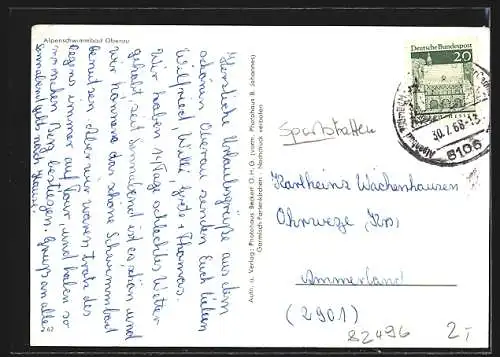 Alpenschwimmbad Oberau
Herzliche Urlaubsgrüße aus dem
schönen Oberau senden Euch lieben
Wilfried, Willi, Grete + Thomas.
Wir haben 14 Tage schlechtes Wetter
gehabt, seit Sonnabend ist es schön und
wir können das schöne Schwimmbad
benutzen. Aber wir waren trotz des
Regens immer auf Tour und haben so
manchen Berg bestiegen. Gruß an alle
Sonnabend geht's nach Hause!
62
Auth. u. Verlag: Photohaus Becker O.H.G. (vorm. Photohaus B. Johannes)
Garmisch-Partenkirchen · Nachdruck verboten
Deutsche Bundespost
20
30.7.68-13
8106
Karlheinz Wachenhausen
Ohrwege Krs.
Ammerland
(2901)
82496
2,-